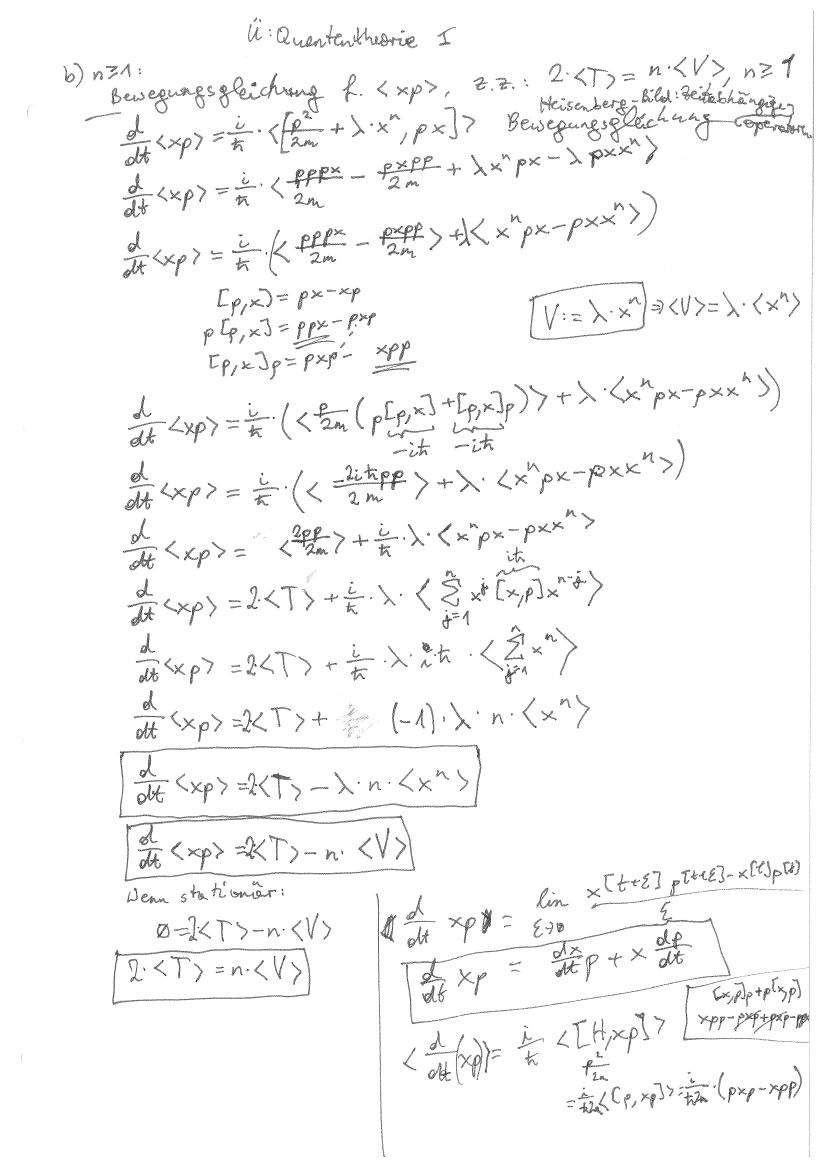 Ü: Quantentheorie I
b) n≥1:
Bewegungsgleichung f. <xp>, z.z.: 2·<T> = n·<V>, n≥1
Heisenberg-Bild: zeitabhängige Operatoren
Bewegungsgleichung
d/dt <xp> = i/ħ · <[p²/2m + λ·xⁿ, px]>
d/dt <xp> = i/ħ · <pppx/2m − pxpp/2m + λxⁿpx − λpxxⁿ>
d/dt <xp> = i/ħ · (<pppx/2m − pxpp/2m> + λ<xⁿpx − pxxⁿ>)
[p,x] = px − xp
p[p,x] = ppx − pxp
[p,x]p = pxp − xpp
V := λ·xⁿ ⇒ <V> = λ·<xⁿ>
d/dt <xp> = i/ħ · (<p/2m (p[p,x] + [p,x]p)> + λ·<xⁿpx − pxxⁿ>)
−iħ −iħ
d/dt <xp> = i/ħ · (<−2iħpp/2m> + λ·<xⁿpx − pxxⁿ>)
d/dt <xp> = <2pp/2m> + i/ħ · λ·<xⁿpx − pxxⁿ>
iħ
d/dt <xp> = 2·<T> + i/ħ · λ · <Σ_{j=1}^{n} x^j [x,p] x^{n−j}>
d/dt <xp> = 2<T> + i/ħ · λ · iħ · <Σ_{j=1}^{n} xⁿ>
d/dt <xp> = 2<T> + (−1)·λ·n·<xⁿ>
d/dt <xp> = 2<T> − λ·n·<xⁿ>
d/dt <xp> = 2<T> − n·<V>
Wenn stationär:
0 = 2<T> − n·<V>
2·<T> = n·<V>
d/dt xp = lim_{ε→0} (x[t+ε] p[t+ε] − x[t]p[t])/ε
d/dt xp = dx/dt p + x dp/dt
[x,p]p + p[x,p]
xpp − pxp + pxp − pp
<d/dt (xp)> = i/ħ <[H, xp]>
p²/2m
= i/ħ2m <[p, xp]> = i/ħ2m · (pxp − xpp)